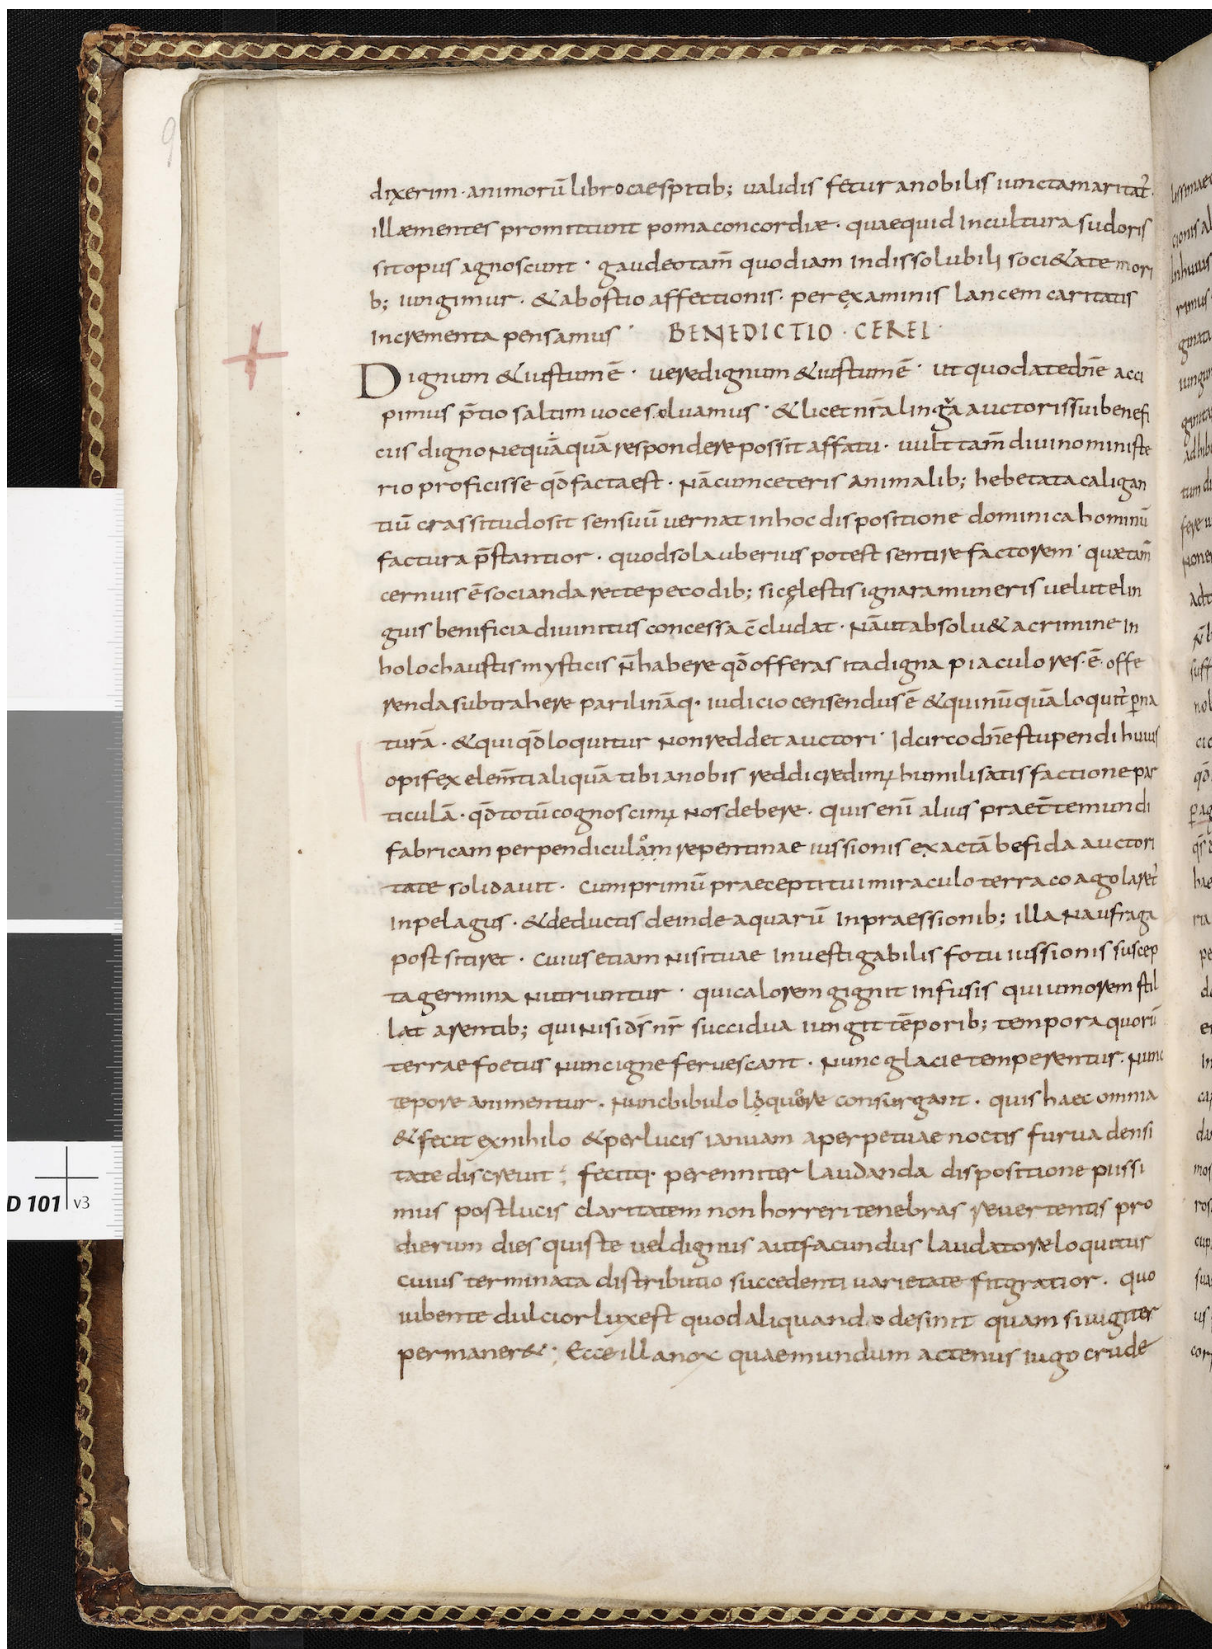 dixerim · animorū libro caespitib; validis fetur anobilis iunctamaritat̃
illæmentes promittunt poma concordiæ · quaequid Incultura sudoris
sit opus agnoscunt · gaudeo tam̃ quodiam Indissolubili soci&ate mori
b; iungimur · & abostio affectionis · per examinis lancem caritatis
Incrementa pensamus · BENEDICTIO · CEREI ·
Dignum & iustum ē · vere dignum & iustum ē · ut quod a te dñe acci
pimus p̄tio saltim voce soluamus · & licet nr̃a lingua auctoris sui benefi
ciis digno Nequaquā respondere possit affatu · vult tam̃ diuino ministe
rio proficisse qd̄ facta est · Nā cum ceteris animalib; hebetata caligan
tiū crassitudo sit sensuū vernat in hoc dispositione dominica hominū
factura p̄stantior · quod sola uberius potest sentire factorem · quæ tam̃
cernuis ē socianda recte pecodib; si cęlestis ignara muneris velut elin
guis benificia diuinitus concessa c̄cludat · Nā ut absolu& a crimine In
holochaustis mysticis N̄ habere qd̄ offeras ita digna piaculo res · ē · offe
renda subtrahere pari linā q · iudicio censendus ē & qui nūquā loquit̃ p na
turā · & qui qd̄ loquitur Non reddet auctori · Idcirco dñe stupendi huius
opifex elem̃ti aliquā tibi a nobis reddi credimꝰ humili satisfactione par
ticulā · qd̄ totū cognoscimꝰ Nos debere · quis enī alius praet̃ te mundi
fabricam perpendiculam repentinae iussionis exactā befida auctori
tate solidauit · Cum primū praecepti tui miraculo terra coagolaret̃
In pelagus · & deductis deinde aquarū Inpraessionib; illa Naufraga
post sitiret · Cuius etiam Nisi tuae Inuestigabilis fotu iussionis suscep
ta germina Nutriuntur · qui calorem gignit infusis qui umorem stil
lat arentib; qui Nisi ds̄ nr̄ succidua iungit tēporib; tempora quorū
terrae foetus Nunc igne feruescant · Nunc glacie temperentur · Nunc
tepore animentur · Nunc bibulo liquore consurgant · quis haec omnia
& fecit ex nihilo & per lucis ianuam a perpetuae noctis furua densi
tate discreuit · fecitq · perenniter laudanda dispositione piissi
mus post lucis claritatem non horreri tenebras reuertentis pro
dierum dies quis te vel dignus aut facundus laudatore loquitus
cuius terminata distributio succedenti varietate fit gratior · quo
iubente dulcior lux est quod aliquando desinit quam si iugiter
permaner& · Ecce illa nox quae mundum actenus iugo crude